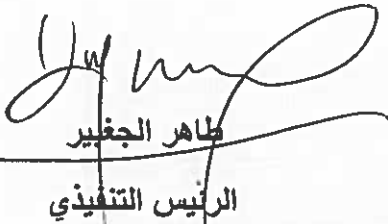 طاهر الجغبير
الرئيس التنفيذي